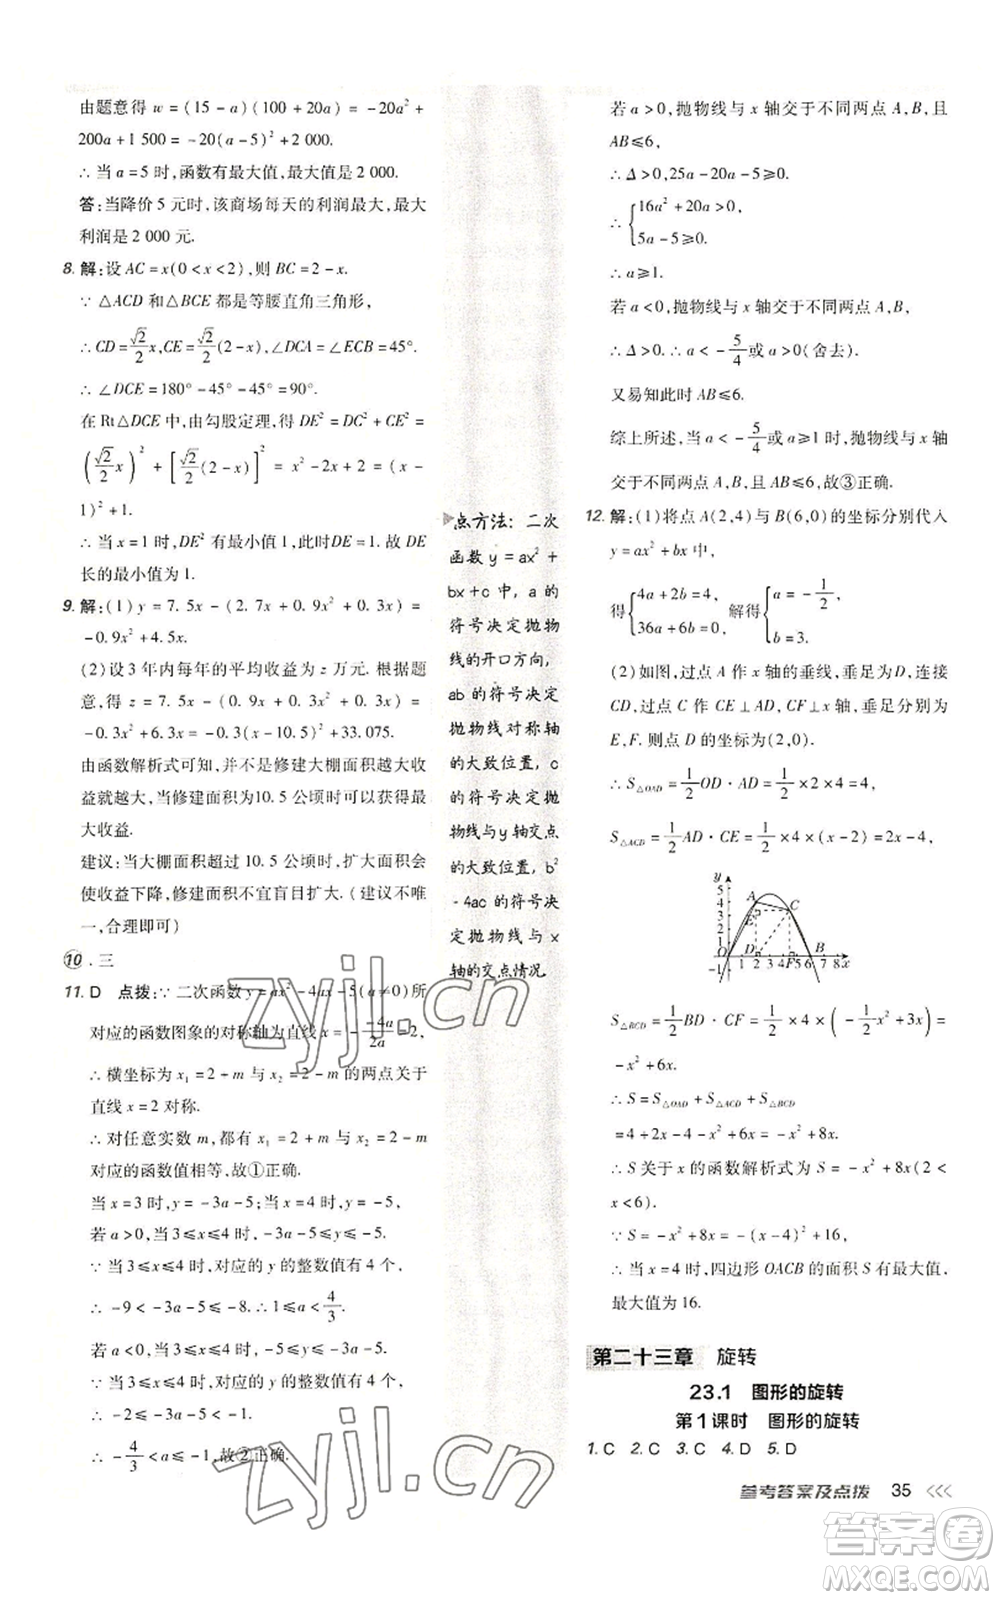 由题意得 w=(15-a)(100+20a)=-20a²+
200a+1 500=-20(a-5)²+2 000.
∴当 a=5 时,函数有最大值,最大值是 2 000.
答:当降价 5 元时,该商场每天的利润最大,最大
利润是 2 000 元.
8. 解:设 AC=x(0<x<2),则 BC=2-x.
∵△ACD 和△BCE 都是等腰直角三角形,
∴CD=√2/2 x,CE=√2/2(2-x),∠DCA=∠ECB=45°.
∴∠DCE=180°-45°-45°=90°.
在 Rt△DCE 中,由勾股定理,得 DE²=DC²+CE²=
(√2/2 x)²+[√2/2(2-x)]²=x²-2x+2=(x-
1)²+1.
∴当 x=1 时,DE² 有最小值 1,此时DE=1.故 DE
长的最小值为 1.
9. 解:(1)y=7.5x-(2.7x+0.9x²+0.3x)=
-0.9x²+4.5x.
(2)设 3 年内每年的平均收益为 z 万元.根据题
意,得 z=7.5x-(0.9x+0.3x²+0.3x)=
-0.3x²+6.3x=-0.3(x-10.5)²+33.075.
由函数解析式可知,并不是修建大棚面积越大收
益就越大,当修建面积为10.5公顷时可以获得最
大收益.
建议:当大棚面积超过 10.5 公顷时,扩大面积会
使收益下降,修建面积不宜盲目扩大.(建议不唯
一,合理即可)
10. 三
11. D 点拨:∵二次函数y=ax²-4ax-5(a≠0)所
对应的函数图象的对称轴为直线x=-(-4a)/2a=2,
∴横坐标为 x₁=2+m 与 x₂=2-m 的两点关于
直线 x=2 对称.
∴对任意实数 m,都有 x₁=2+m 与 x₂=2-m
对应的函数值相等,故①正确.
当 x=3 时,y=-3a-5;当 x=4 时,y=-5,
若 a>0,当 3≤x≤4 时,-3a-5≤y≤-5.
∵当 3≤x≤4 时,对应的 y 的整数值有 4 个,
∴-9<-3a-5≤-8.∴1≤a<4/3.
若 a<0,当 3≤x≤4 时,-5≤y≤-3a-5.
∵当 3≤x≤4 时,对应的 y 的整数值有 4 个,
∴-2≤-3a-5<-1.
∴-4/3<a≤-1,故②正确.
点方法:二次
函数 y=ax²+
bx+c 中,a 的
符号决定抛物
线的开口方向,
ab 的符号决定
抛物线对称轴
的大致位置,c
的符号决定抛
物线与y轴交点
的大致位置,b²
-4ac 的符号决
定抛物线与 x
轴的交点情况.
若 a>0,抛物线与 x 轴交于不同两点 A,B,且
AB≤6,
∴Δ>0,25a-20a-5≥0.
∴{16a²+20a>0,
5a-5≥0.
∴a≥1.
若 a<0,抛物线与 x 轴交于不同两点 A,B,
∴Δ>0.∴a<-5/4或 a>0(舍去).
又易知此时 AB≤6.
综上所述,当 a<-5/4或 a≥1 时,抛物线与 x 轴
交于不同两点 A,B,且 AB≤6,故③正确.
12. 解:(1)将点 A(2,4)与 B(6,0)的坐标分别代入
y=ax²+bx 中,
得{4a+2b=4, 36a+6b=0, 解得{a=-1/2, b=3.
(2)如图,过点 A 作 x 轴的垂线,垂足为D,连接
CD,过点 C 作 CE⊥AD,CF⊥x 轴,垂足分别为
E,F.则点 D 的坐标为(2,0).
∴S△OAD=1/2 OD·AD=1/2×2×4=4,
S△ACD=1/2 AD·CE=1/2×4×(x-2)=2x-4,
y
5
4
3
2
1
-1
A
C
E
O
1
D
2
3
4
F
5
B
6
7
8
x
S△BCD=1/2 BD·CF=1/2×4×(-1/2 x²+3x)=
-x²+6x.
∴S=S△OAD+S△ACD+S△BCD
=4+2x-4-x²+6x=-x²+8x.
∴S 关于 x 的函数解析式为 S=-x²+8x(2<
x<6).
∵S=-x²+8x=-(x-4)²+16,
∴当 x=4 时,四边形 OACB 的面积 S 有最大值,
最大值为 16.
第二十三章 旋转
23.1 图形的旋转
第 1 课时 图形的旋转
1. C 2. C 3. C 4. D 5. D
参考答案及点拨 35
zyjl.cn
zyjl.cn
答案圈
MXQE.COM